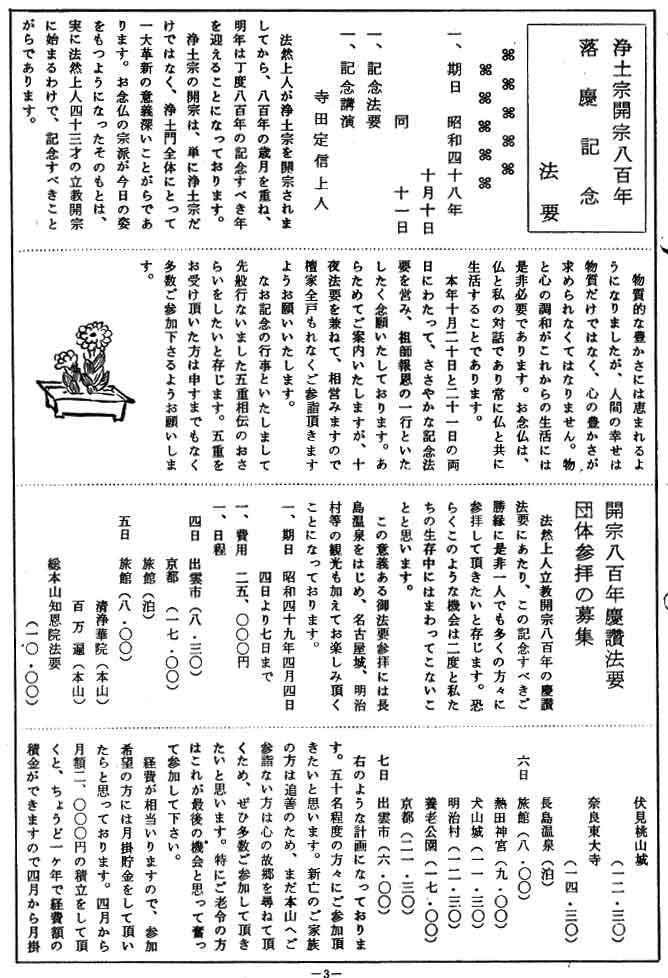 浄土宗開宗八百年
落慶記念
法要
一、期日　昭和四十八年
十月十日
同　　十一日
一、記念法要
一、記念講演
寺田定信上人
法然上人が浄土宗を開宗されま
してから、八百年の歳月を重ね、
明年は丁度八百年の記念すべき年
を迎えることになっております。
浄土宗の開宗は、単に浄土宗だ
けではなく、浄土門全体にとって
一大革新の意義深いことがらであ
ります。お念仏の宗派が今日の姿
をもつようになったそのもとは、
実に法然上人四十三才の立教開宗
に始まるわけで、記念すべきこと
がらであります。
物質的な豊かさには恵まれるよ
うになりましたが、人間の幸せは
物質だけではなく、心の豊かさが
求められなくてはなりません。物
と心の調和がこれからの生活には
是非必要であります。お念仏は、
仏と私の対話であり常に仏と共に
生活することであります。
本年十月二十日と二十一日の両
日にわたって、ささやかな記念法
要を営み、祖師報恩の一行といた
したく念願いたしております。あ
らためてご案内いたしますが、十
夜法要を兼ねて、相営みますので
檀家全戸もれなくご参詣頂きます
ようお願いいたします。
なお記念の行事といたしまして
先般行ないました五重相伝のおさ
らいをしたいと存じます。五重を
お受け頂いた方は申すまでもなく
多数ご参加下さるようお願いしま
す。
開宗八百年慶讃法要
団体参拝の募集
法然上人立教開宗八百年の慶讃
法要にあたり、この記念すべきご
勝縁に是非一人でも多くの方々に
参拝して頂きたいと存じます。恐
らくこのような機会は二度と私た
ちの生存中にはまわってこないこ
とと思います。
この意義ある御法要参拝には長
島温泉をはじめ、名古屋城、明治
村等の観光も加えてお楽しみ頂く
ことになっております。
一、期日　昭和四十九年四月四日
四日より七日まで
一、費用　二五、〇〇〇円
一、日程
四日　出雲市（八・三〇）
京都　（一七・〇〇）
旅館（泊）
五日　旅館（八・〇〇）
清浄華院（本山）
百万遍（本山）
総本山知恩院法要
（一〇・〇〇）
伏見桃山城
（一二・三〇）
奈良東大寺
（一四・三〇）
長島温泉（泊）
六日　旅館（八・〇〇）
熱田神宮（九・〇〇）
犬山城　（一一・三〇）
明治村　（一二・三〇）
養老公園（一七・〇〇）
京都（二一・三〇）
七日　出雲市（六・〇〇）
右のような計画になっておりま
す。五十名程度の方々にご参加頂
きたいと思います。新亡のご家族
の方は追善のため、まだ本山へご
参詣ない方は心の故郷を尋ねて頂
くため、ぜひ多数ご参加して頂き
たいと思います。特にご老令の方
はこれが最後の機会と思って奮っ
て参加して下さい。
経費が相当いりますので、参加
希望の方には月掛貯金をして頂い
たらと思っております。四月から
月額二、〇〇〇円の積立をして頂
くと、ちょうど一ヶ年で経費額の
積金ができますので四月から月掛
—3—